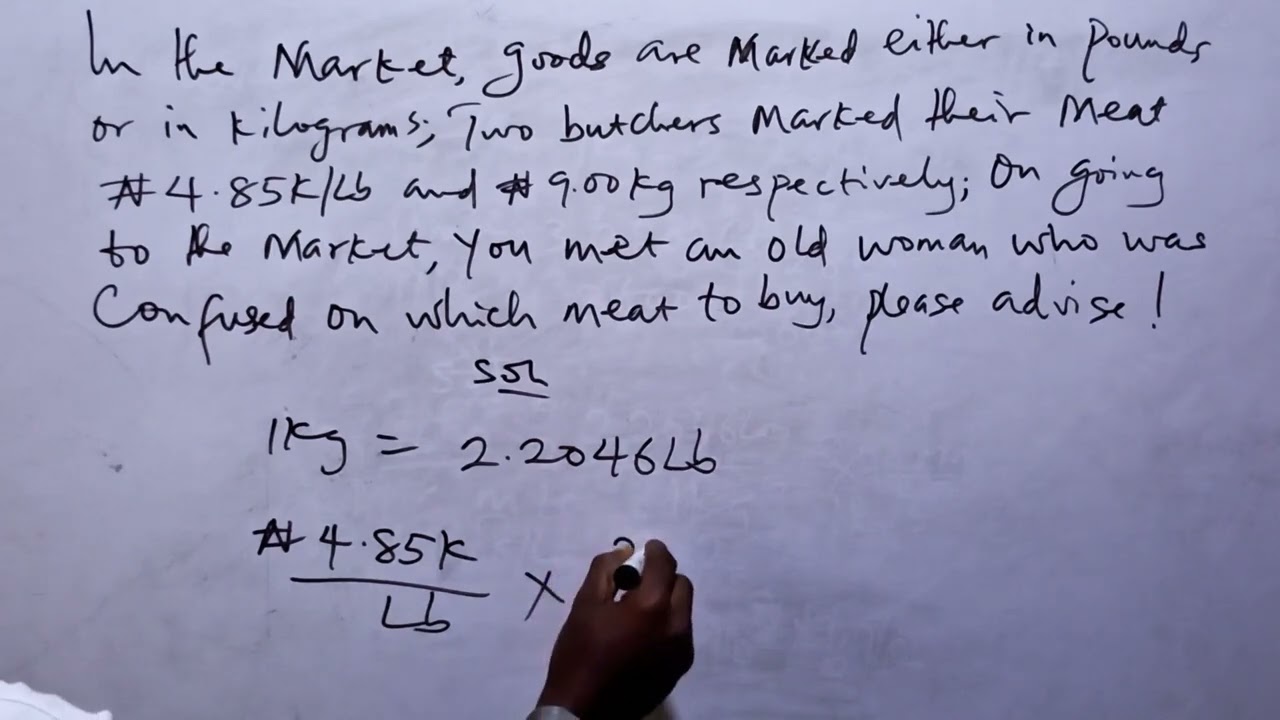 In the Market, goods are Marked either in Pounds
or in Kilograms; Two butchers Marked their Meat
₦4.85K/Lb and ₦9.00Kg respectively; On going
to the Market, You met an old woman who was
Confused on which meat to buy, please advise!
Soln
1Kg = 2.2046Lb
₦4.85K
Lb
×